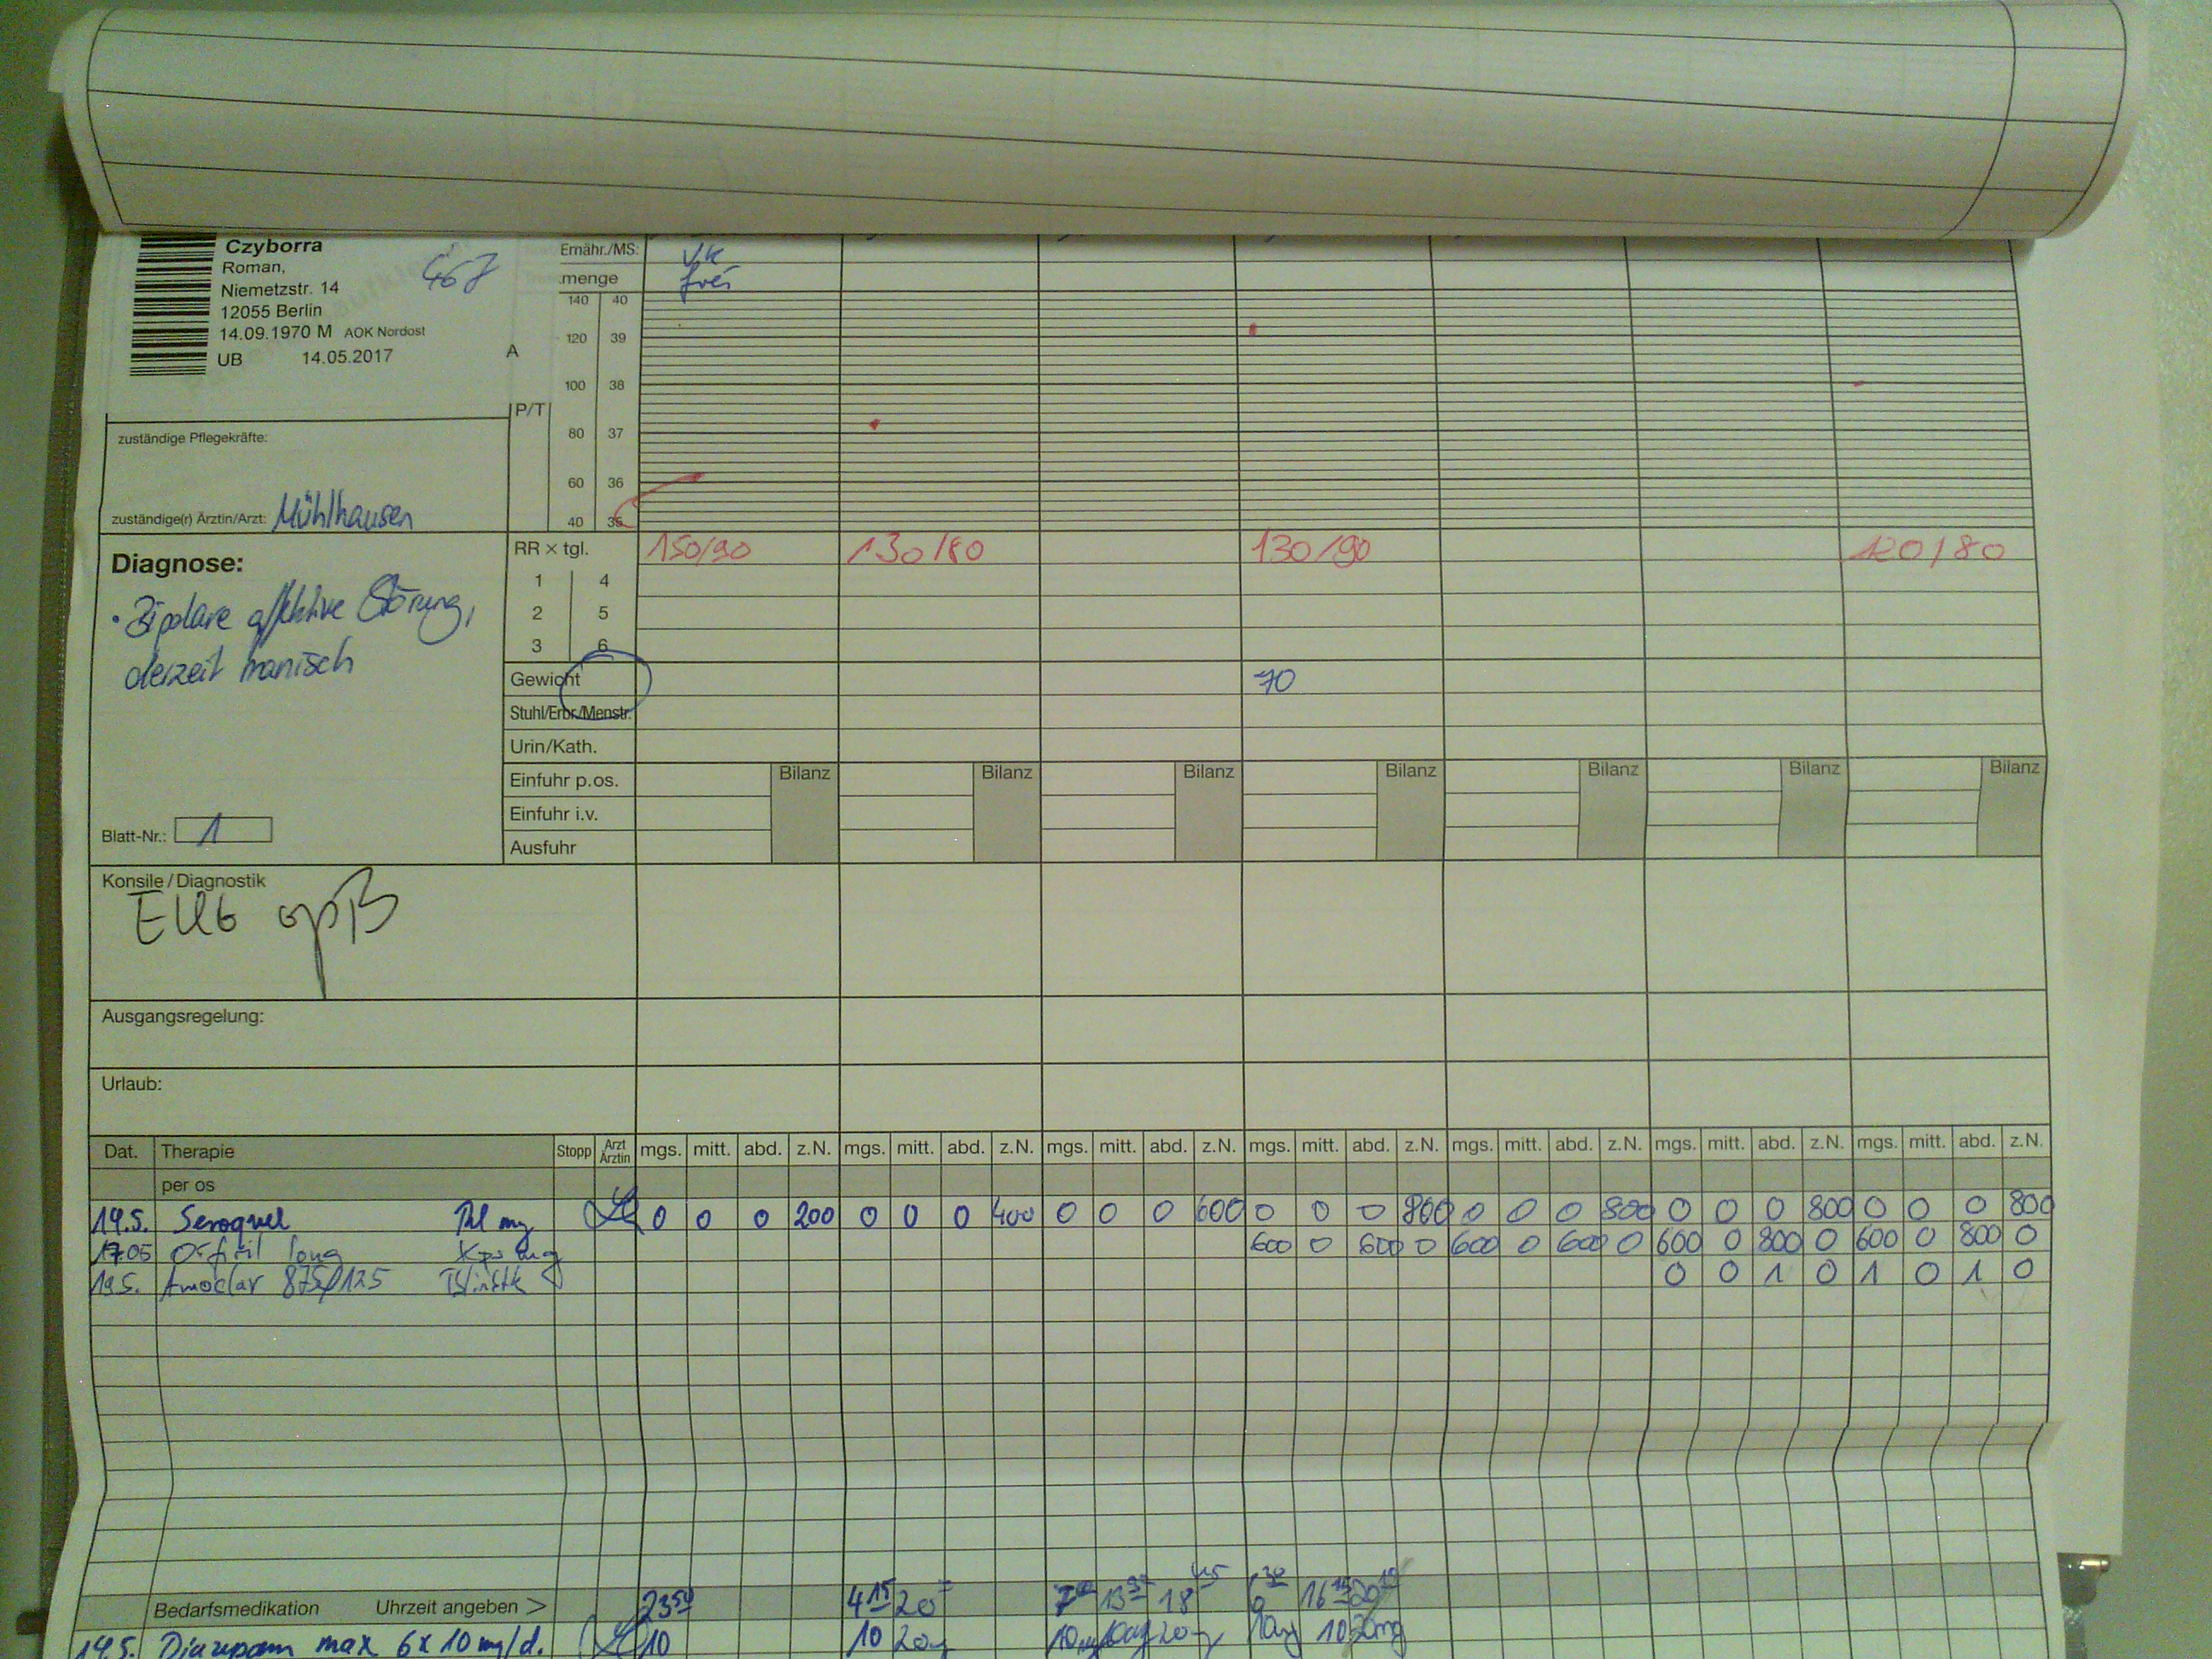 Czyborra
Roman,
Niemetzstr. 14
12055 Berlin
14.09.1970 M AOK Nordost
UB 14.05.2017
467
A
P/T
Ernähr./MS: VK
menge frei
140 40
120 39
100 38
80 37
60 36
40 35
zuständige Pflegekräfte:
zuständige(r) Ärztin/Arzt: Mühlhausen
Diagnose:
• Bipolare affektive Störung,
derzeit manisch
Blatt-Nr.: 1
RR × tgl. 150/90 130/80 130/90 120/80
1 4
2 5
3 6
Gewicht 70
Stuhl/Erbr./Menstr.
Urin/Kath.
Einfuhr p.os. Bilanz Bilanz Bilanz Bilanz Bilanz Bilanz Bilanz
Einfuhr i.v.
Ausfuhr
Konsile/Diagnostik
EKG
Ausgangsregelung:
Urlaub:
Dat. Therapie Stopp Arzt Ärztin mgs. mitt. abd. z.N. mgs. mitt. abd. z.N. mgs. mitt. abd. z.N. mgs. mitt. abd. z.N. mgs. mitt. abd. z.N. mgs. mitt. abd. z.N. mgs. mitt. abd. z.N.
per os
14.5. Seroquel mg 0 0 0 200 0 0 0 400 0 0 0 600 0 0 0 800 0 0 0 800 0 0 0 800 0 0 0 800
17.05 Orfiril long mg 600 0 600 0 600 0 600 0 600 0 800 0 600 0 800 0
19.5. Amoclav 875/125 0 0 1 0 1 0 1 0
Bedarfsmedikation Uhrzeit angeben > 23 50 4 15 20 7 13 18 45 6 30 16 15
14.5. Diazepam max 6 x 10 mg/d. 10 10 20 10 10 20 10 10 20mg